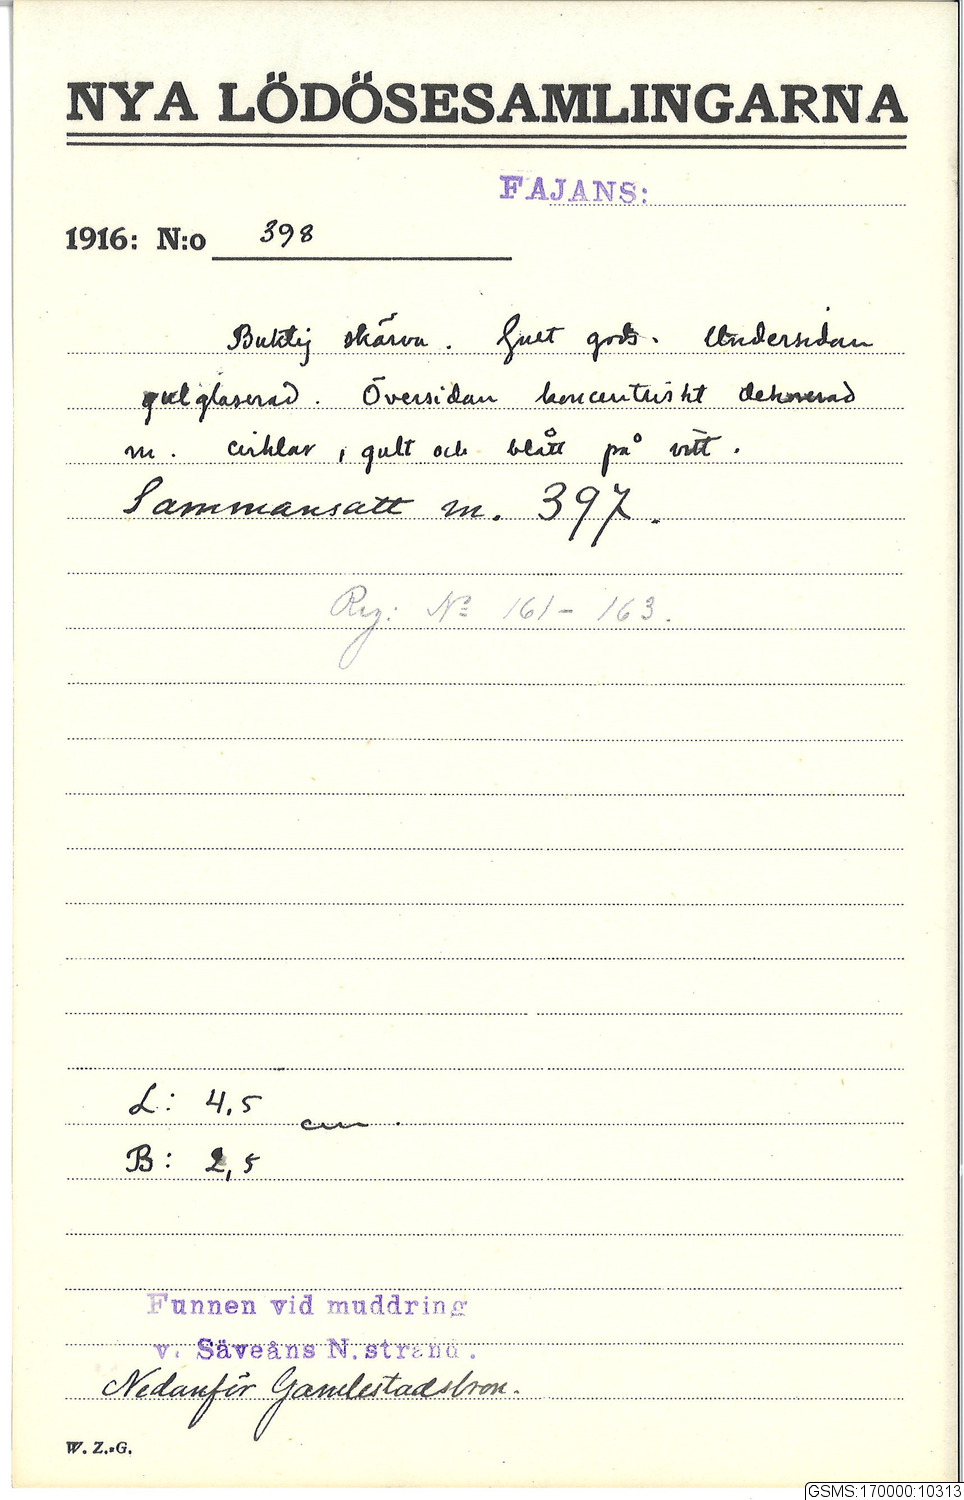 NYA LÖDÖSESAMLINGARNA
FAJANS:
1916: N:o 398
Buktig skärva. Gult gods. Undersidan
gulglaserad. Översidan koncentriskt dekorerad
m. cirklar i gult och blått på vitt.
Sammansatt m. 397.
Reg: No 161-163.
L: 4,5
cm.
B: 2,5
Funnen vid muddring
v. Säveåns N. strand.
Nedanför Gamlestadsbron.
W. Z.-G.
GSMS:170000:10313